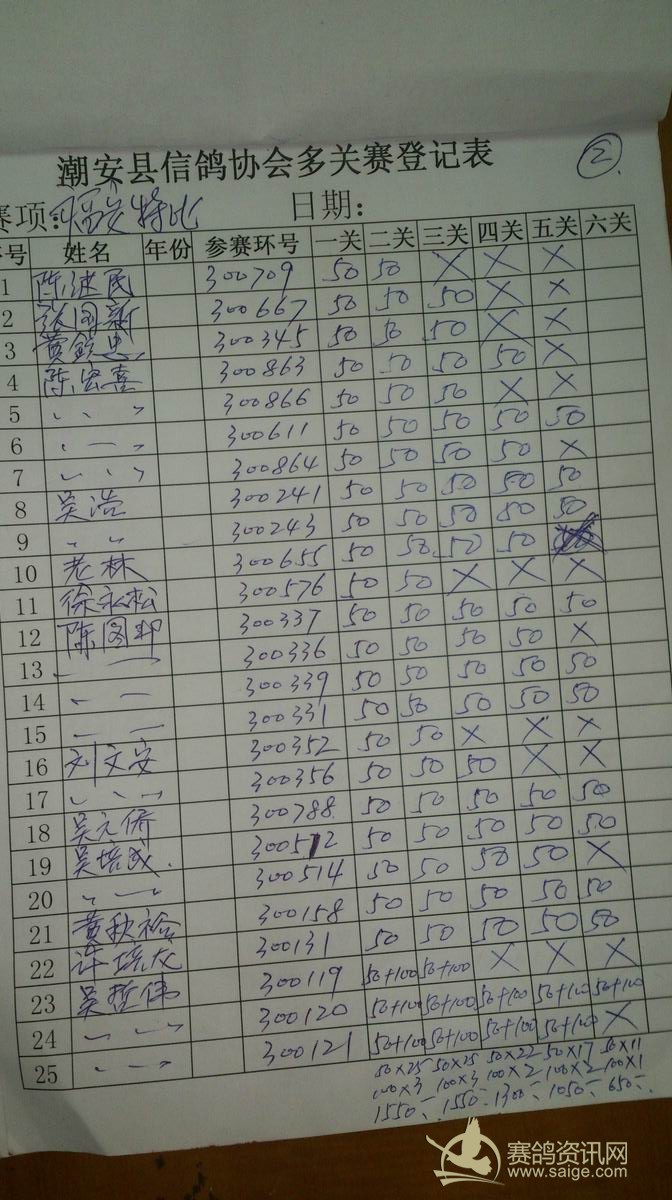 潮安县信鸽协会多关赛登记表 ②
赛项: 日期:
序号 姓名 年份 参赛环号 一关 二关 三关 四关 五关 六关
1 陈建民 300709 50 50 × × ×
2 张国新 300667 50 50 50 × ×
3 黄钦忠 300345 50 50 50 × ×
4 陈宏喜 300863 50 50 50 50 ×
5 〃 〃 〃 300866 50 50 50 × ×
6 〃 — 〃 300611 50 50 50 50 50
7 〃 〃 〃 300864 50 50 50 50 ×
8 吴浩 300241 50 50 50 50 50
9 〃 〃 300243 50 50 50 50 50
10 老林 300655 50 50 50 50
11 徐永松 300576 50 50 × × ×
12 陈图邦 300337 50 50 50 50 50
13 — — 300336 50 50 50 50 ×
14 〃 — 300339 50 50 50 50 50
15 — — 300331 50 50 50 50 50
16 刘文安 300352 50 50 × × ×
17 〃 〃 〃 300356 50 50 50 × ×
18 吴元侨 300788 50 50 50 50 50
19 吴培成 300512 50 50 50 50 50
20 〃 — 〃 300514 50 50 50 50 ×
21 黄秋裕 300158 50 50 50 50 50
22 许 300131 50 50 50 50 50
23 吴哲伟 300119 50+100 50+100 × × ×
24 〃 — 〃 300120 50+100 50+100 50+100 50+100 50+100
25 〃 — 〃 300121 50+100 50+100 50+100 50+100 ×
50×25 50×25 50×22 50×17 50×11
100×3 100×3 100×2 100×2 100×1
1550- 1550- 1300- 1050- 650-
赛鸽资讯网
www.saige.com